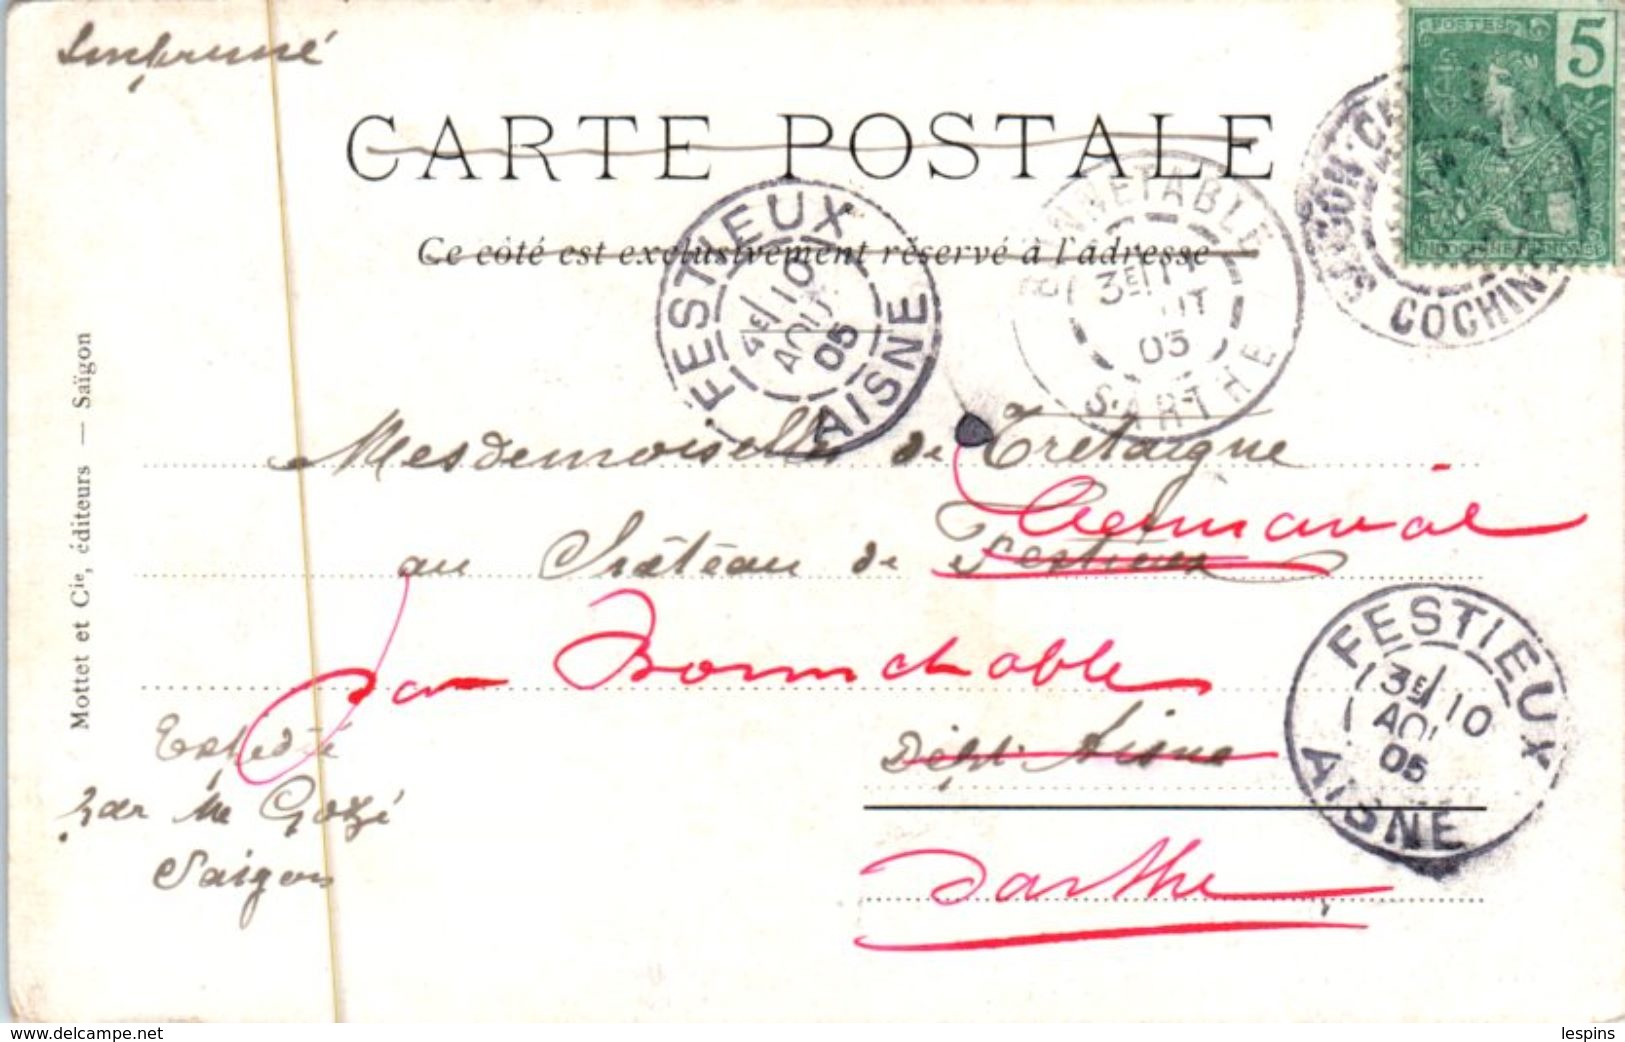 Imprimé
POSTES
5
INDOCHINE FRANÇAISE
CARTE POSTALE
Ce côté est exclusivement réservé à l'adresse
SAIGON
COCHIN
BONNETABLE
3E
11
05
SARTHE
FESTIEUX
4E 10
AOUT
05
AISNE
Mesdemoiselles de Tretaigne
au Château de Festieux
par Bonnetable
Dépt. Aisne
Sarthe
FESTIEUX
3E 10
AOU
05
AISNE
Expédié
par Me Gozé
Saigon
Mottet et Cie, éditeurs — Saïgon
www.delcampe.net
lespins